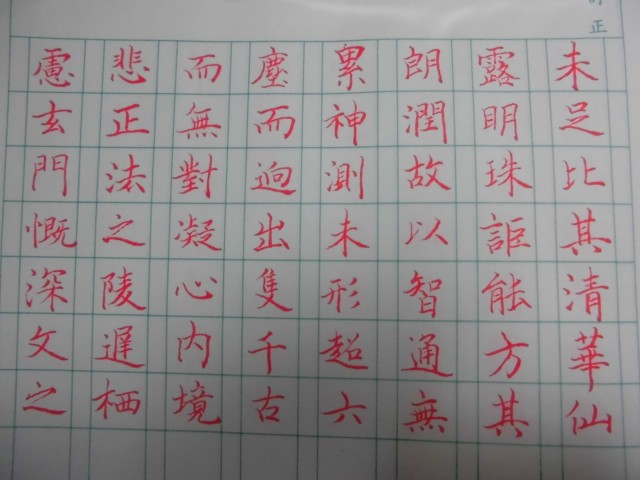 訂正
未足比其清華仙
露明珠詎能方其
朗潤故以智通無
累神測未形超六
塵而迥出隻千古
而無對凝心內境
悲正法之陵遲栖
慮玄門慨深文之